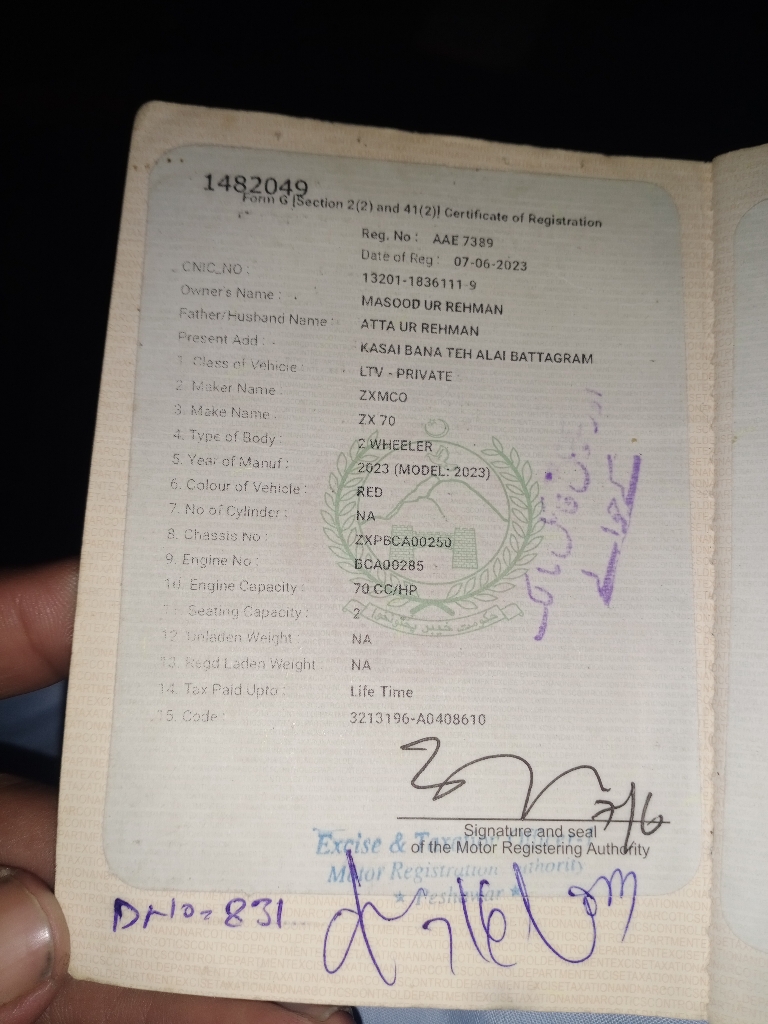 1482049
Form G [Section 2(2) and 41(2)] Certificate of Registration
Reg. No : AAE 7389
Date of Reg : 07-06-2023
CNIC_NO : 13201-1836111-9
Owner's Name : MASOOD UR REHMAN
Father/Husband Name : ATTA UR REHMAN
Present Add : KASAI BANA TEH ALAI BATTAGRAM
1. Class of Vehicle : LTV - PRIVATE
2. Maker Name : ZXMCO
3. Make Name : ZX 70
4. Type of Body : 2 WHEELER
5. Year of Manuf : 2023 (MODEL: 2023)
6. Colour of Vehicle : RED
7. No of Cylinder : NA
8. Chassis No : ZXPBCA00250
9. Engine No : BCA00285
10. Engine Capacity : 70 CC/HP
11. Seating Capacity : 2
12. Unladen Weight : NA
13. Regd Laden Weight : NA
14. Tax Paid Upto : Life Time
15. Code : 3213196-A0408610
حکومت خیبر پختونخوا
7/6
Signature and seal
of the Motor Registering Authority
Excise & Taxation
Motor Registration Authority
★ Peshawar ★
DNo= 831